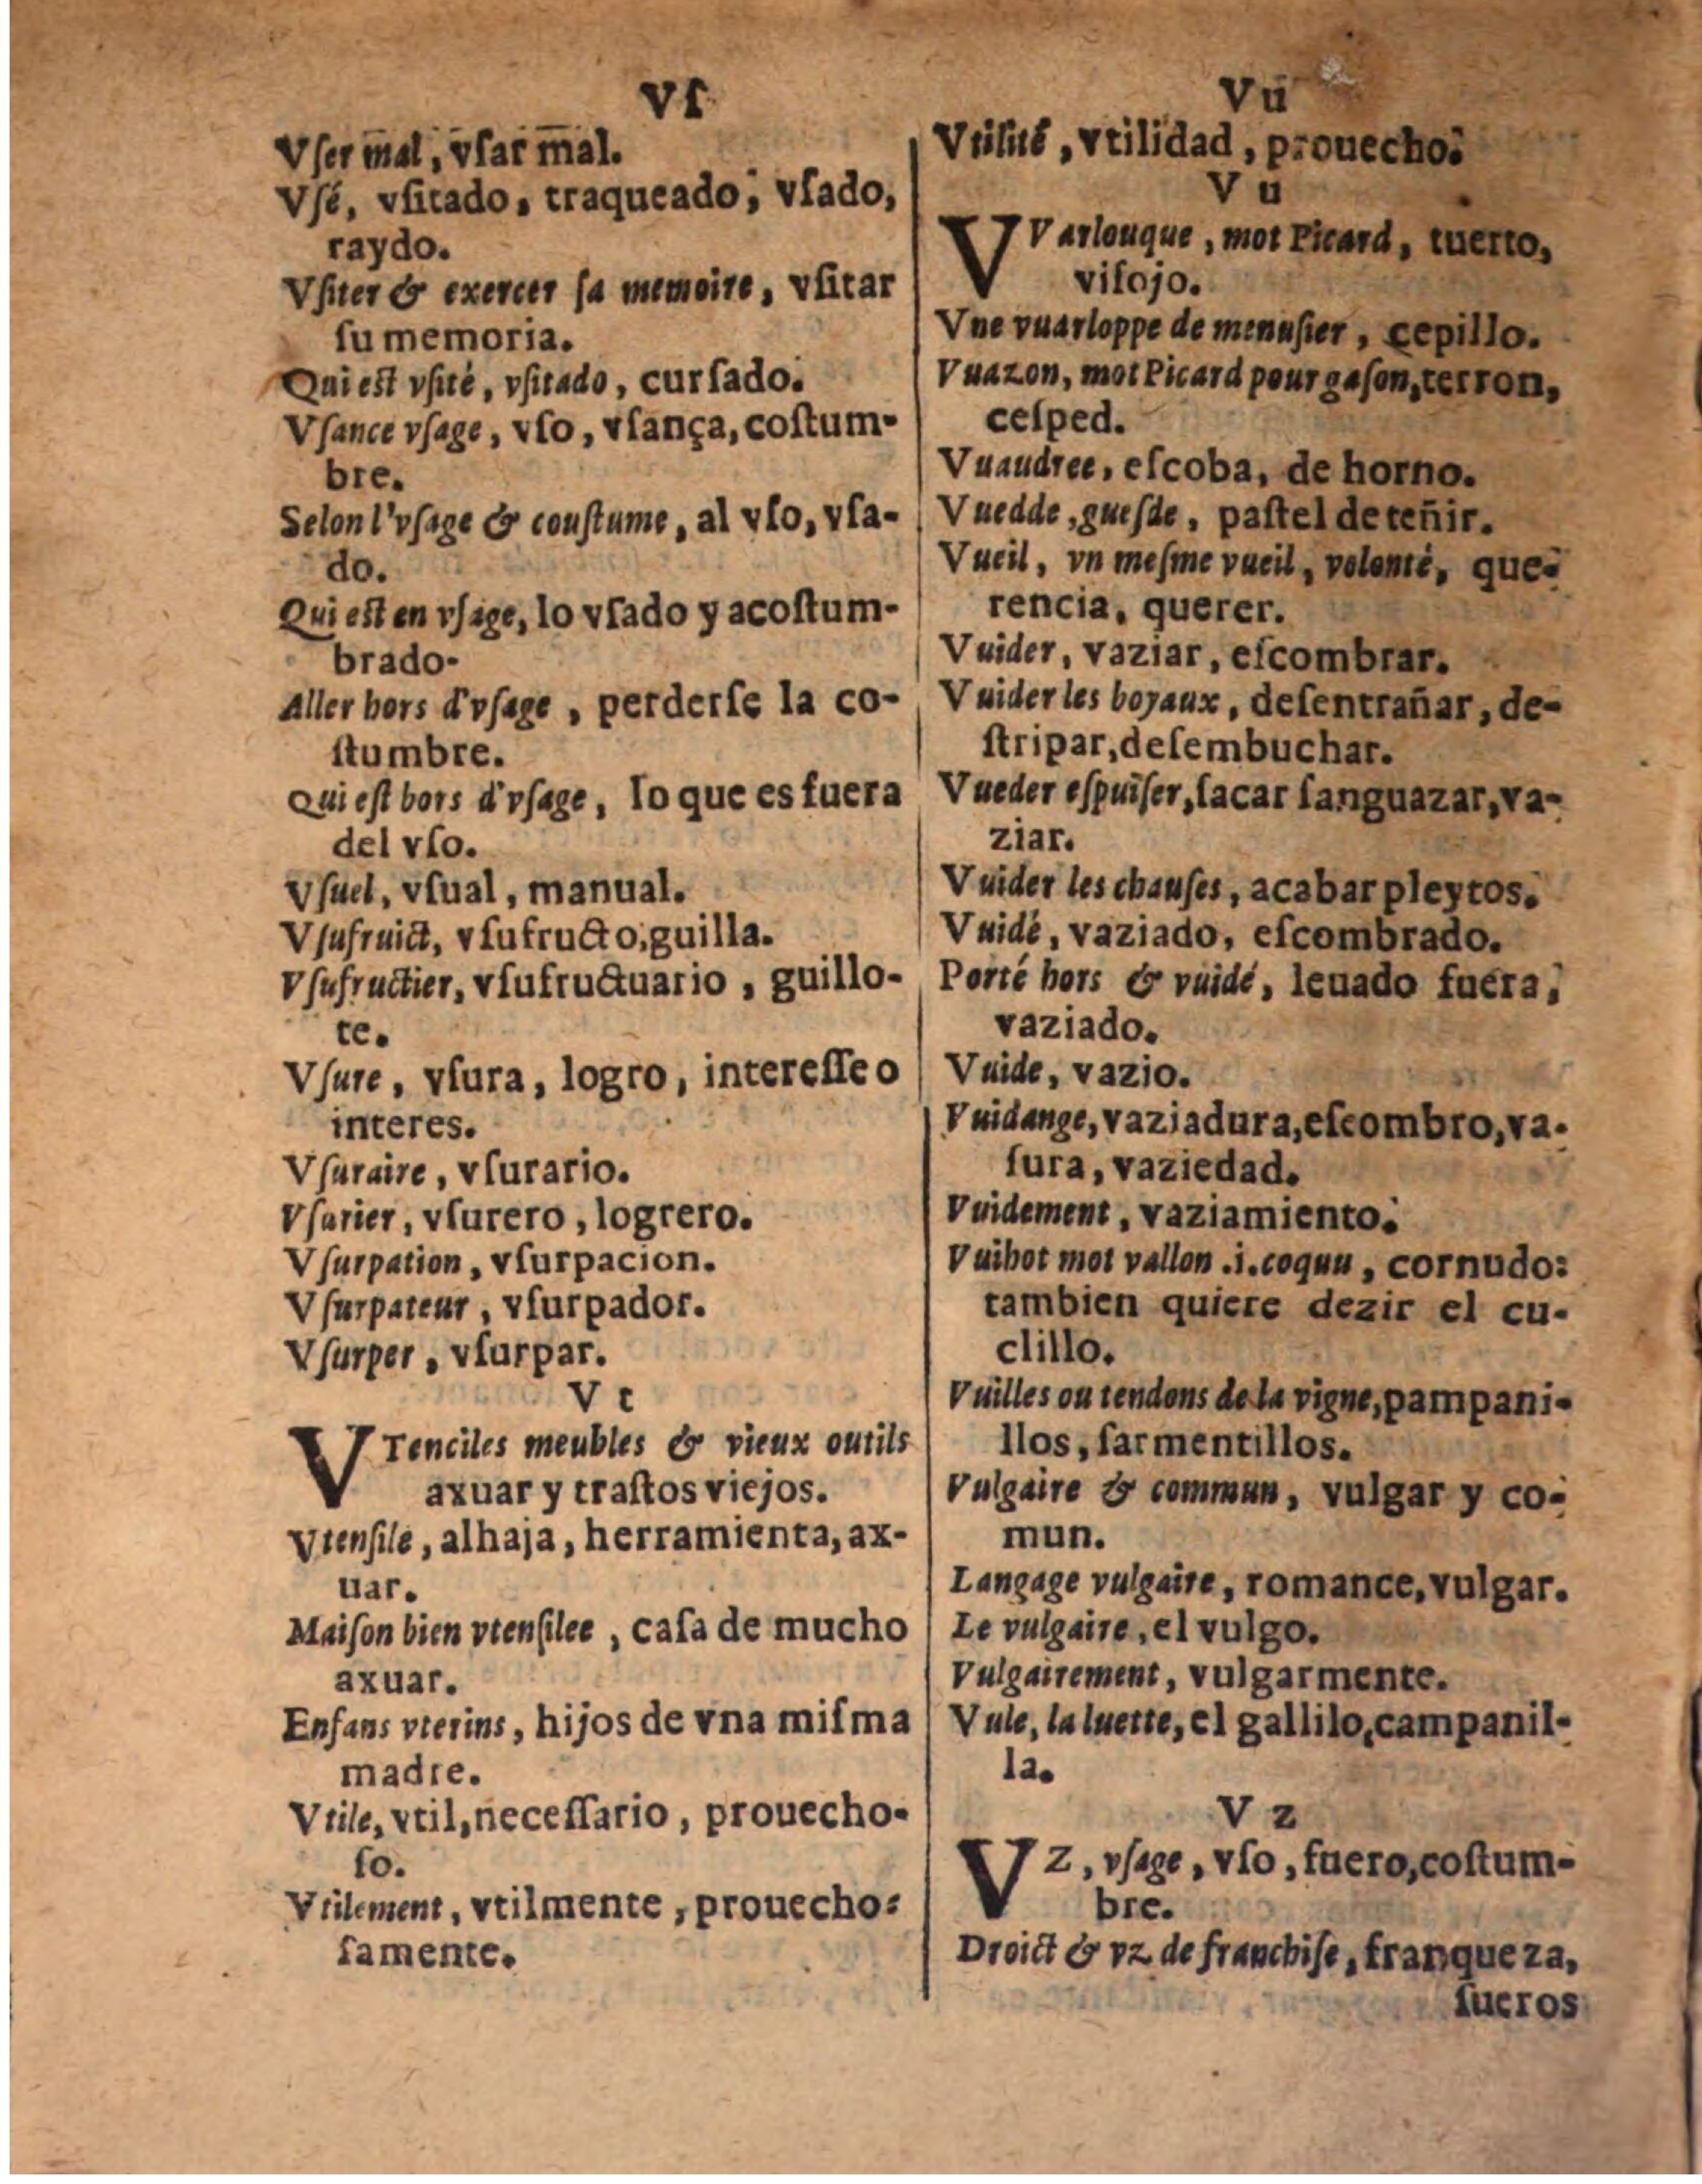 Vſ
Vſer mal, vſar mal.
Vſé, vſitado, traqueado, vſado,
raydo.
Vſiter & exercer ſa memoire, vſitar
ſu memoria.
Qui eſt vſité, vſitado, curſado.
Vſance vſage, vſo, vſança, coſtum-
bre.
Selon l'vſage & couſtume, al vſo, vſa-
do.
Qui eſt en vſage, lo vſado y acoſtum-
brado.
Aller hors d'vſage, perderſe la co-
ſtumbre.
Qui eſt hors d'vſage, lo que es fuera
del vſo.
Vſuel, vſual, manual.
Vſufruict, vſufructo, guilla.
Vſufructier, vſufructuario, guillo-
te.
Vſure, vſura, logro, intereſſe o
interes.
Vſuraire, vſurario.
Vſurier, vſurero, logrero.
Vſurpation, vſurpacion.
Vſurpateur, vſurpador.
Vſurper, vſurpar.
V t
VTenciles meubles & vieux outils
axuar y traſtos viejos.
Vtenſile, alhaja, herramienta, ax-
uar.
Maiſon bien vtenſilee, caſa de mucho
axuar.
Enfans vterins, hijos de vna miſma
madre.
Vtile, vtil, neceſſario, prouecho-
ſo.
Vtilement, vtilmente, prouecho-
ſamente.
Vu
Vtilité, vtilidad, prouecho.
V u
VVarlouque, mot Picard, tuerto,
viſojo.
Vne vuarloppe de menuſier, cepillo.
Vuazon, mot Picard pour gaſon, terron,
ceſped.
Vuaudree, eſcoba, de horno.
Vuedde, gueſde, paſtel de teñir.
Vueil, vn meſme vueil, volonté, que-
rencia, querer.
Vuider, vaziar, eſcombrar.
Vuider les boyaux, deſentrañar, de-
ſtripar, deſembuchar.
Vueder eſpuiſer, ſacar ſanguazar, va-
ziar.
Vuider les chauſes, acabar pleytos.
Vuidé, vaziado, eſcombrado.
Porté hors & vuidé, leuado fuera,
vaziado.
Vuide, vazio.
Vuidange, vaziadura, eſcombro, va-
ſura, vaziedad.
Vuidement, vaziamiento.
Vuihot mot vallon .i. coquu, cornudo:
tambien quiere dezir el cu-
clillo.
Vuilles ou tendons de la vigne, pampani-
llos, ſarmentillos.
Vulgaire & commun, vulgar y co-
mun.
Langage vulgaire, romance, vulgar.
Le vulgaire, el vulgo.
Vulgairement, vulgarmente.
Vule, la luette, el gallilo, campanil-
la.
V z
VZ, vſage, vſo, fuero, coſtum-
bre.
Droict & vz de franchiſe, franqueza,
fueros